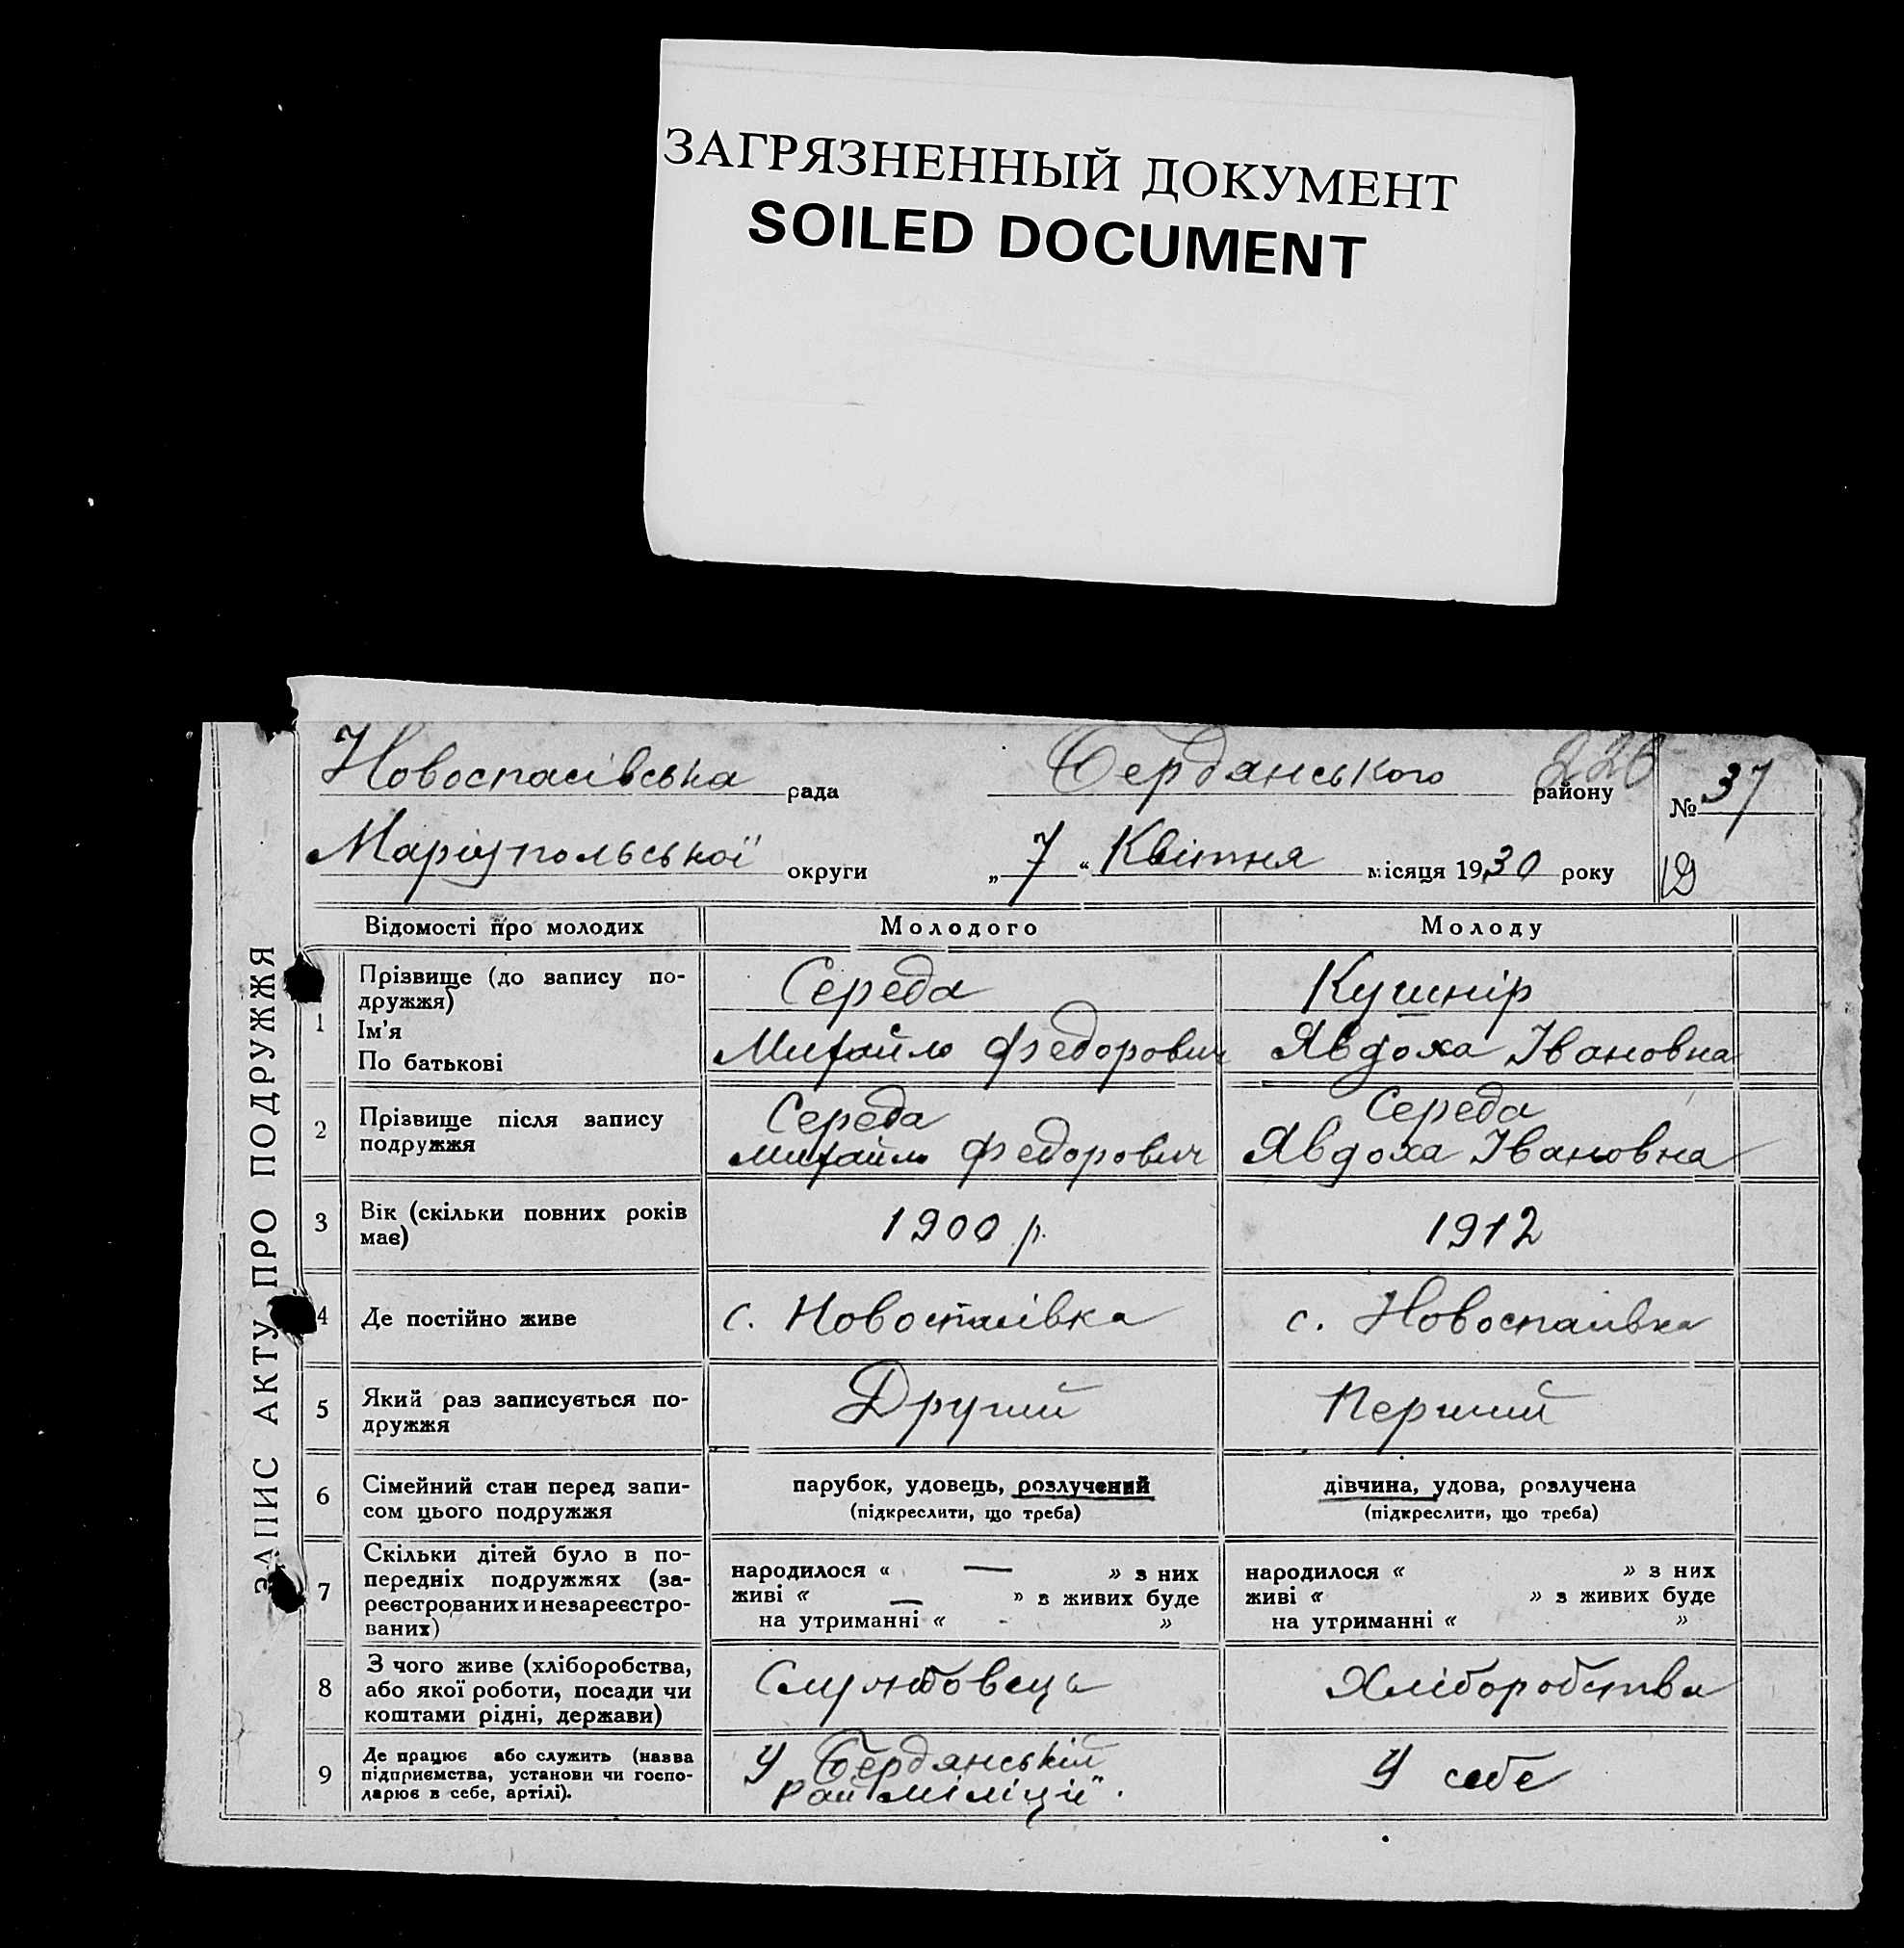 ЗАГРЯЗНЕННЫЙ ДОКУМЕНТ
SOILED DOCUMENT
226
Новоспасівська рада Бердянського району № 37
Маріупольської округи „7“ Квітня місяця 1930 року
ЗАПИС АКТУ ПРО ПОДРУЖЖЯ
Відомості про молодих Молодого Молоду
1 Прізвище (до запису по-
дружжя) Середа Кушнір
Ім'я
По батькові Михайло Федорович Явдоха Івановна
2 Прізвище після запису
подружжя Середа Михайло Федорович Середа Явдоха Івановна
3 Вік (скільки повних років
має) 1900 р. 1912
4 Де постійно живе с. Новоспасівка с. Новоспаівка
5 Який раз записується по-
дружжя Другий Перший
6 Сімейний стан перед запи-
сом цього подружжя
парубок, удовець, розлучений
(підкреслити, що треба)
дівчина, удова, розлучена
(підкреслити, що треба)
7 Скільки дітей було в по-
передніх подружжях (за-
реєстрованих и незареєстро-
ваних)
народилося « — » з них
живі « — » з живих буде
на утриманні « - »
народилося « » з них
живі « » з живих буде
на утриманні « »
8 З чого живе (хліборобства,
або якої роботи, посади чи
коштами рідні, держави) Службовець Хліборобства
9 Де працює або служить (назва
підприємства, установи чи госпо-
дарює в себе, артілі).
У Бердянській
рай міліції.
У себе